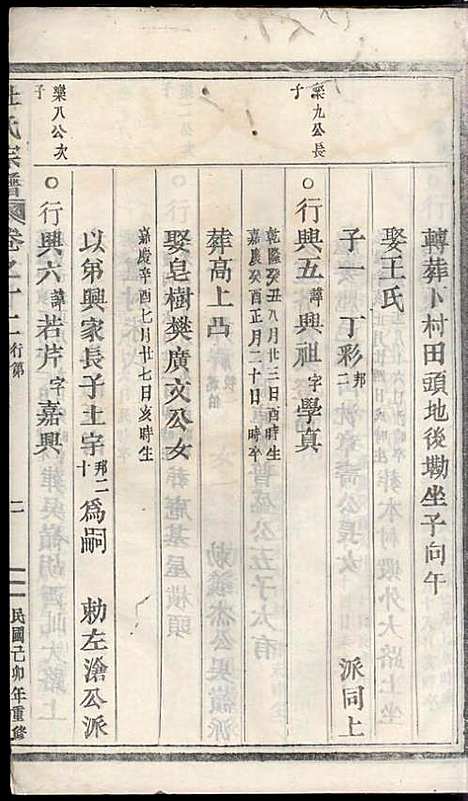 轉葬卜村田頭地後墈坐子向午
娶王氏
子一 丁彩 邦二 派同上
樂九公長子
○行興五 諱興祖 字學真
乾隆癸丑八月廿三日酉時生
嘉慶癸酉正月二十日 時卒
葬高上凸
娶皂樹樊廣文公女
嘉慶辛酉七月廿七日亥時生
以弟興家長子土字 邦二十 為嗣 勅左滄公派
樂八公次子
○行興六 諱若芹 字嘉興
杜氏宗譜 卷之十二 行第 二 民國己卯年重修